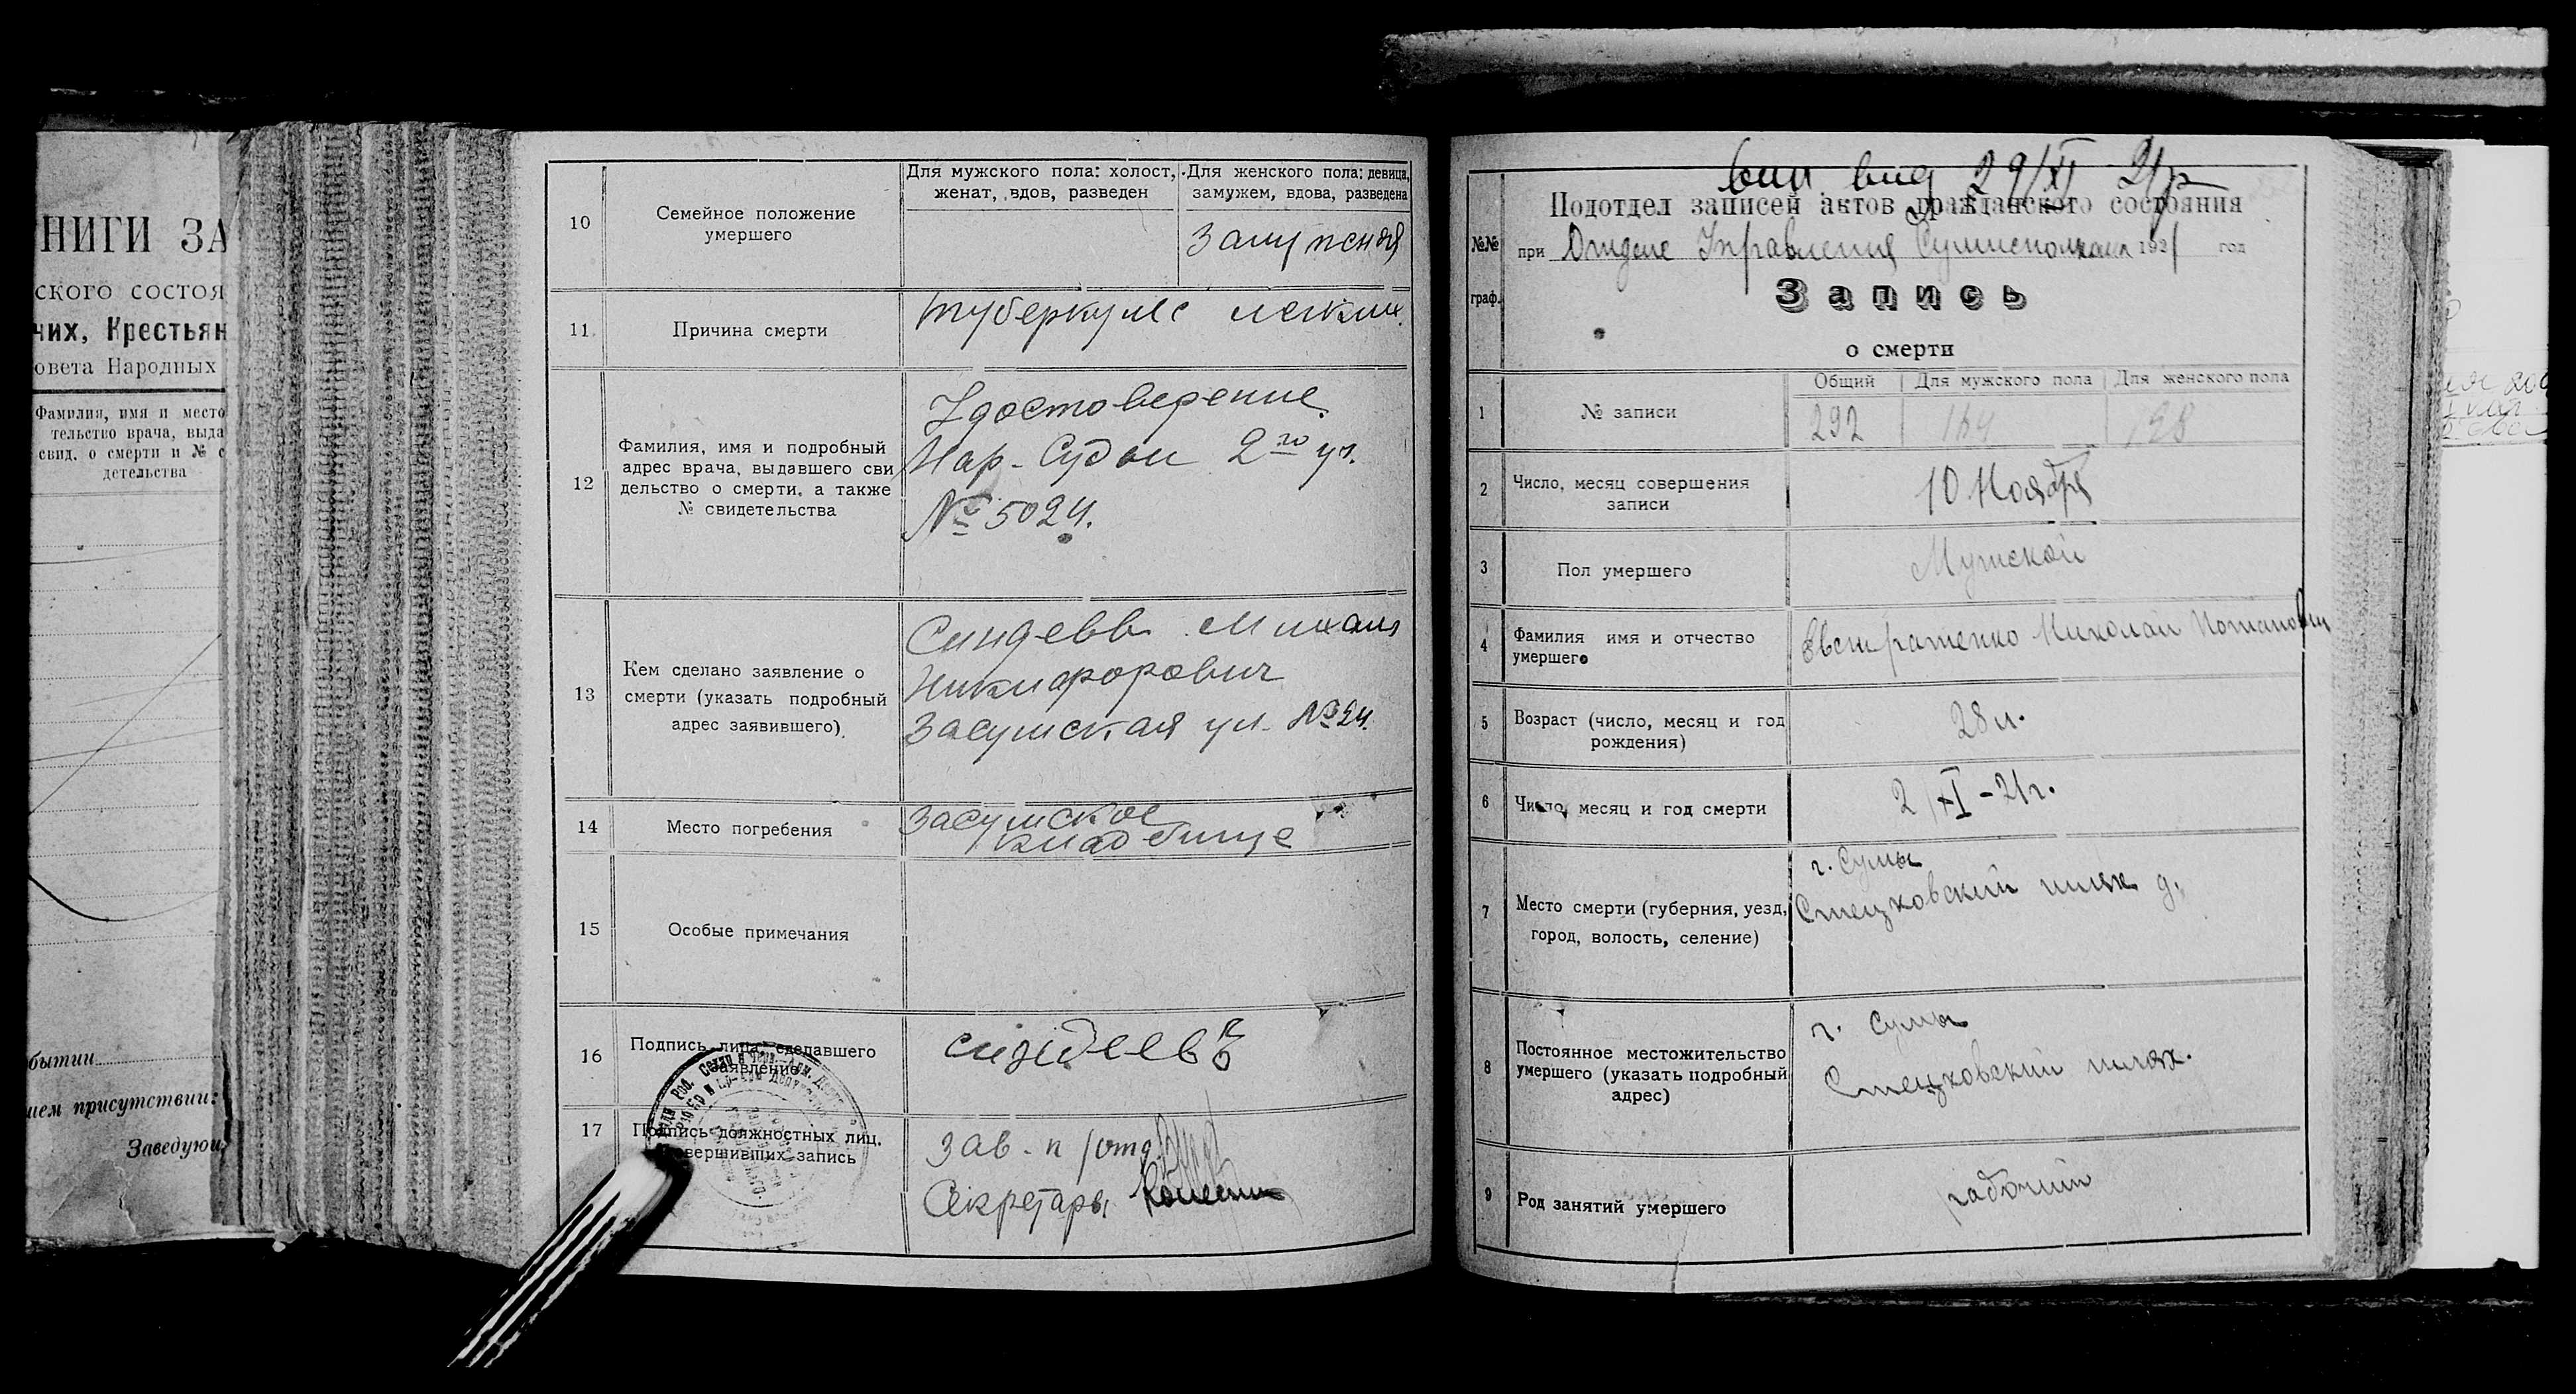 НИГИ ЗА
ского состоя
чих, Крестьян
овета Народных
Фамилия, имя и место
тельство врача, выда
свид. о смерти и № с
детельства
бытии
ием присутствии:
Заведую
10
Семейное положение
умершего
Для мужского пола: холост,
женат, вдов, разведен
Для женского пола: девица,
замужем, вдова, разведена
Замужняя
11
Причина смерти
туберкулс легких
12
Фамилия, имя и подробный
адрес врача, выдавшего сви
дельство о смерти, а также
№ свидетельства
Удостоверение
Нар-Судьи 2го уч.
№ 5024.
13
Кем сделано заявление о
смерти (указать подробный
адрес заявившего)
Синдеев Михаил
Никифорович
Засумская ул. №24.
14
Место погребения
Засумское
кладбище
15
Особые примечания
16
Подпись лица, сделавшего
заявление
Синдеевъ
17
Подпись должностных лиц,
совершивших запись
Зав. п/отд.
Секретарь
вид 29/XI 21г
№№
граф.
Подотдел записей актов гражданского состояния
при Отделе Управления Сумисполкома 1921 год
Запись
о смерти
1
№ записи
Общий
Для мужского пола
Для женского пола
292
164
128
2
Число, месяц совершения
записи
10 Ноября
3
Пол умершего
Мужской
4
Фамилия имя и отчество
умершего
Евстратенко Николай Потапович
5
Возраст (число, месяц и год
рождения)
28 л.
6
Число, месяц и год смерти
2/XI-21г.
7
Место смерти (губерния, уезд,
город, волость, селение)
г. Сумы
Стецковский шлях д.
8
Постоянное местожительство
умершего (указать подробный
адрес)
г. Сумы
Стецковский шлях.
9
Род занятий умершего
рабочий